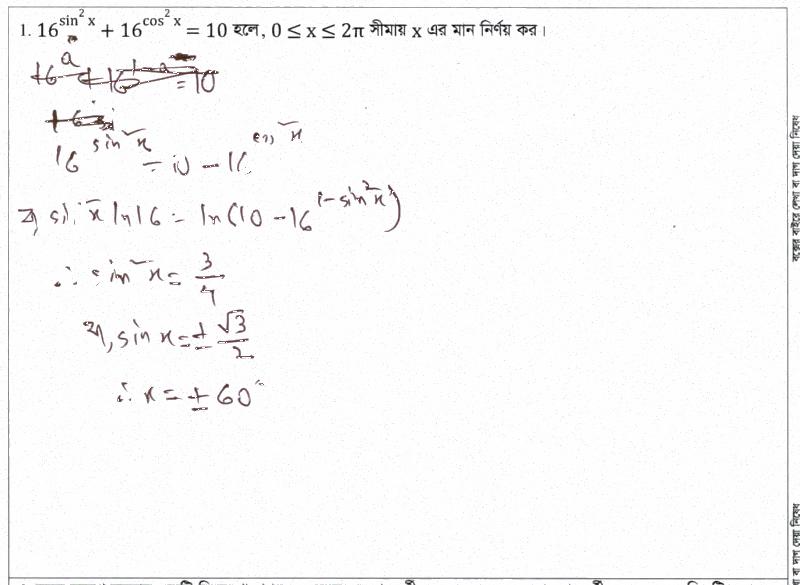 1. 16^{sin² x} + 16^{cos² x} = 10 হলে, 0 ≤ x ≤ 2π সীমায় x এর মান নির্ণয় কর।
= 10
16^{sin² x} = 10 - 16^{cos² x}
বা, sin² x ln 16 = ln(10 - 16^{1-sin² x})
∴ sin² x = 3/4
বা, sin x = ± √3/2
∴ x = ± 60°
বক্সের বাইরে লেখা বা দাগ দেয়া নিষেধ
বা দাগ দেয়া নিষেধ